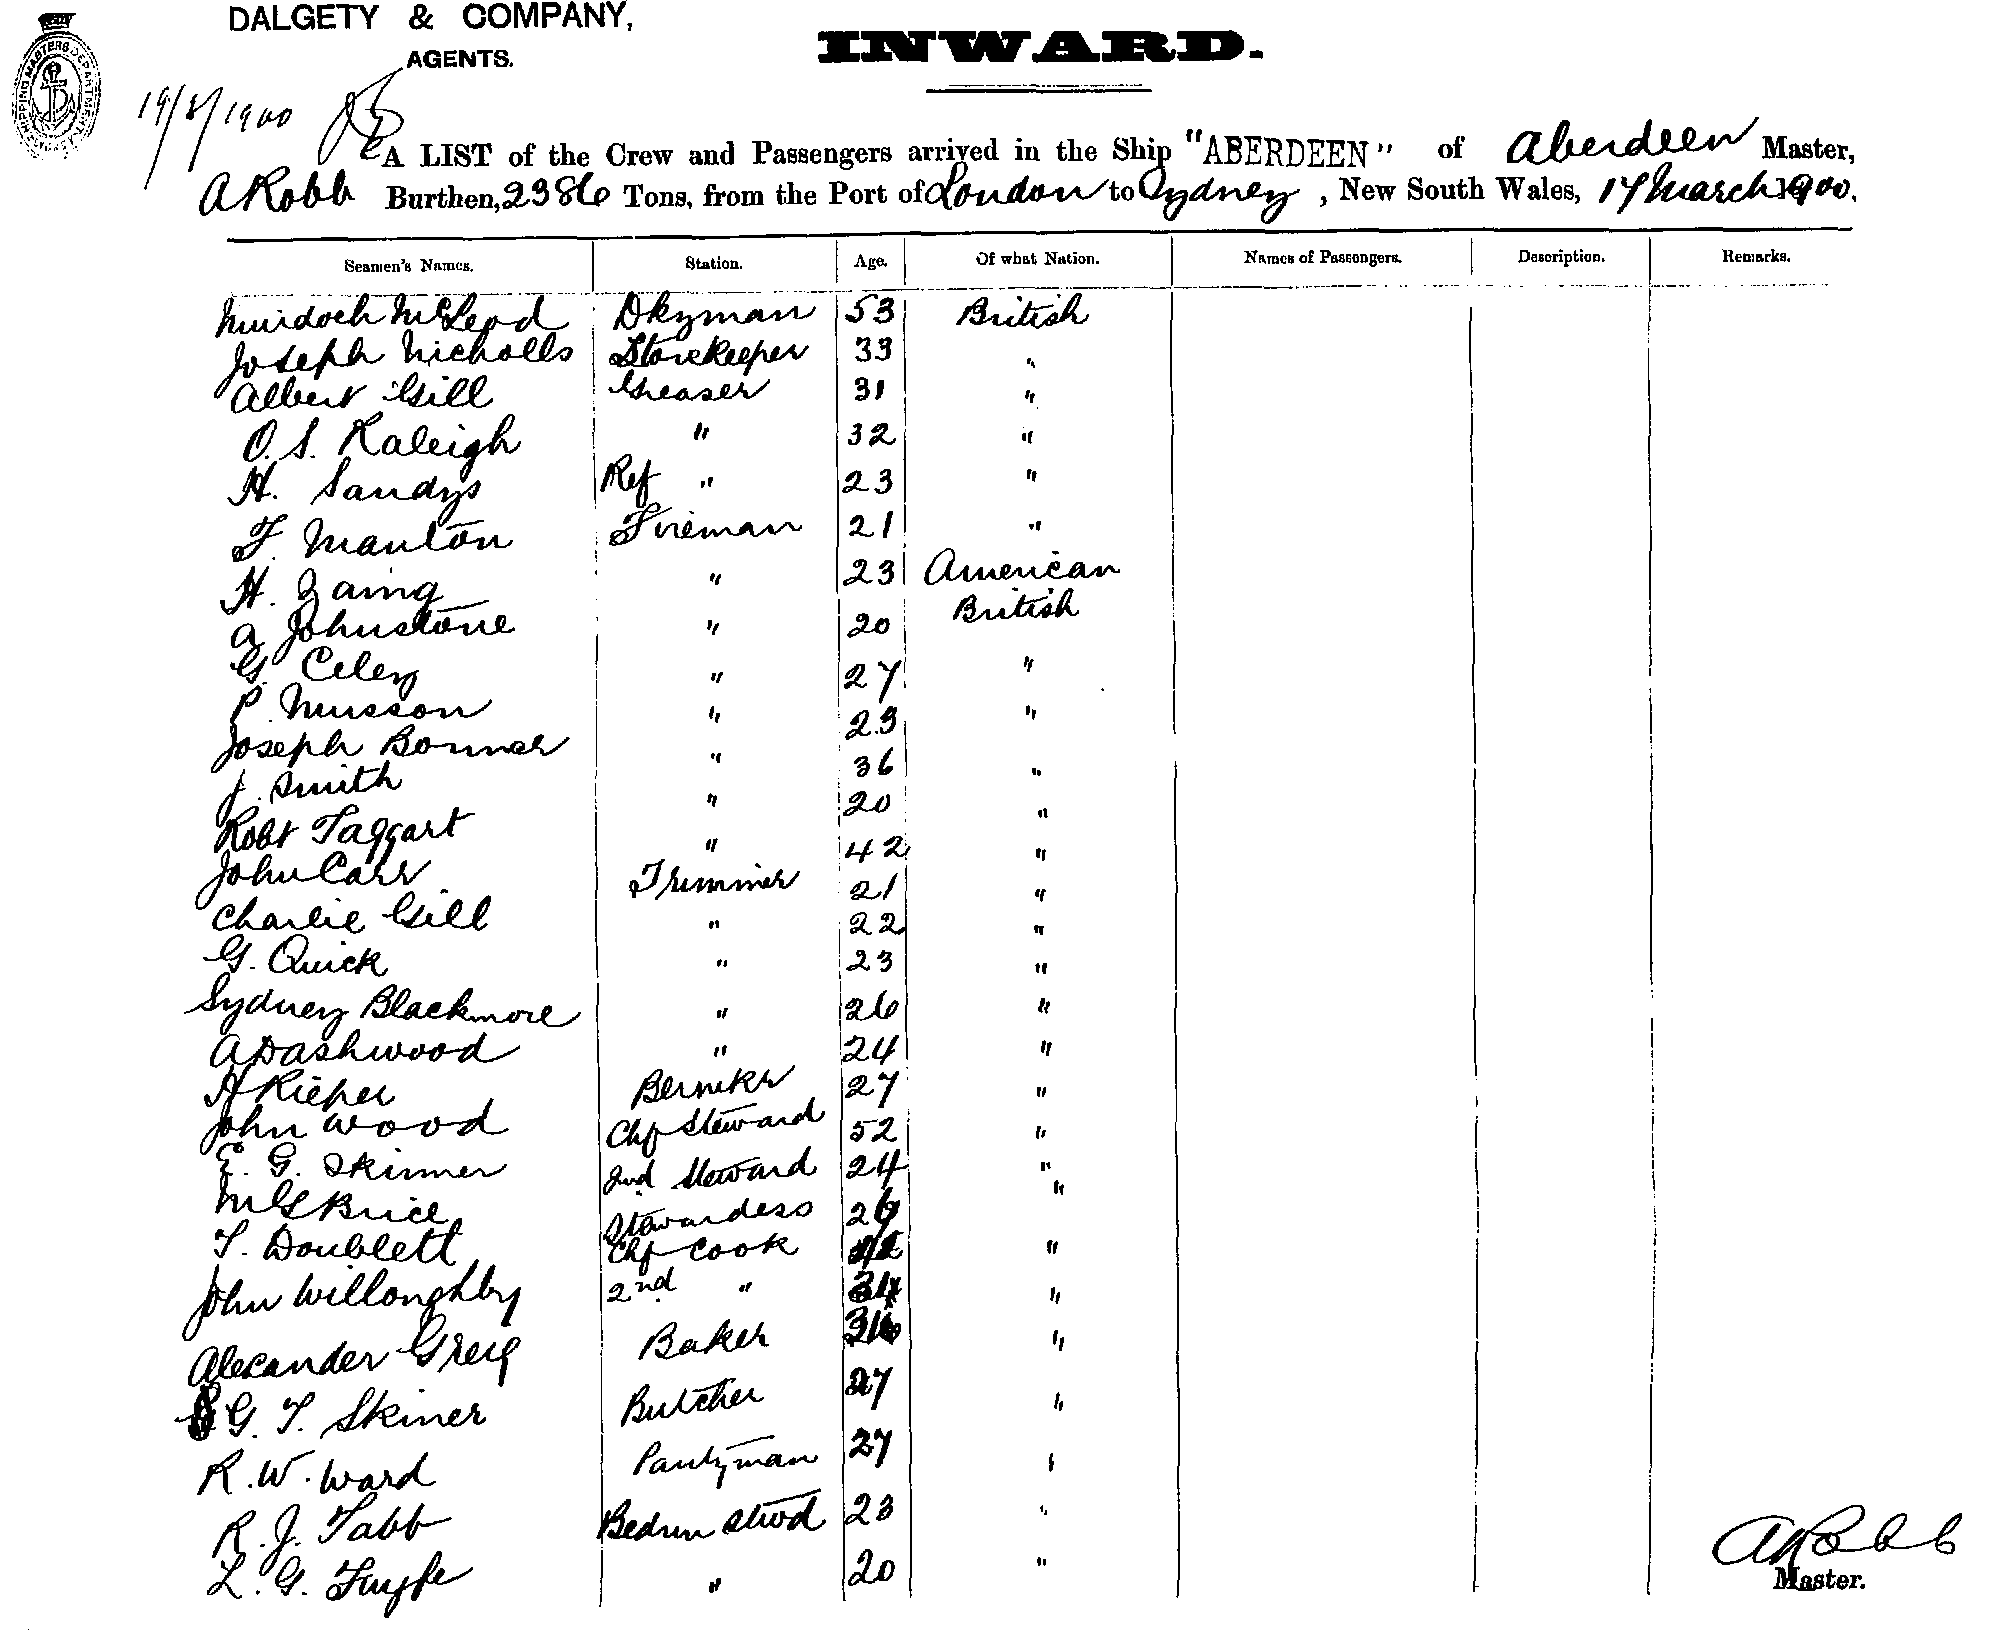 DALGETY & COMPANY,
AGENTS.
INWARD.
SHIPPING MASTERS DEPARTMENT SYDNEY
19/3/1900
A LIST of the Crew and Passengers arrived in the Ship "ABERDEEN" of Aberdeen Master,
A Robb Burthen, 2386 Tons, from the Port of London to Sydney, New South Wales, 17 March 1900.
Seamen's Names. Station. Age. Of what Nation. Names of Passengers. Description. Remarks.
Murdoch McLeod Dkyman 53 British
Joseph Nicholls Storekeeper 33 "
Albert Gill Greaser 31 "
O. S. Raleigh " 32 "
H. Sandys Ref " 23 "
F. Manton Fireman 21 "
H. Laing " 23 American
A Johnstone " 20 British
G. Celey " 27 "
P. Musson " 23 "
Joseph Bonner " 36 "
J. Smith " 20 "
Robt Taggart " 42 "
John Carr Trimmer 21 "
Charlie Gill " 22 "
G. Quick " 23 "
Sydney Blackmore " 26 "
A Dashwood " 24 "
H Rieper 27 "
John Wood Chf Steward 52 "
E. G. Skinner 2nd Steward 24 "
Brice Stewardess 26 "
T. Doublett Chf Cook "
John Willoughby 2nd " 34 "
Alexander Greig Baker "
G. T. Skiner Butcher 27 "
R. W. Ward Pantyman 27 "
R. J. Tabb Bedrm Stwd 23 "
L. G. " 20 "
A Robb
Master.